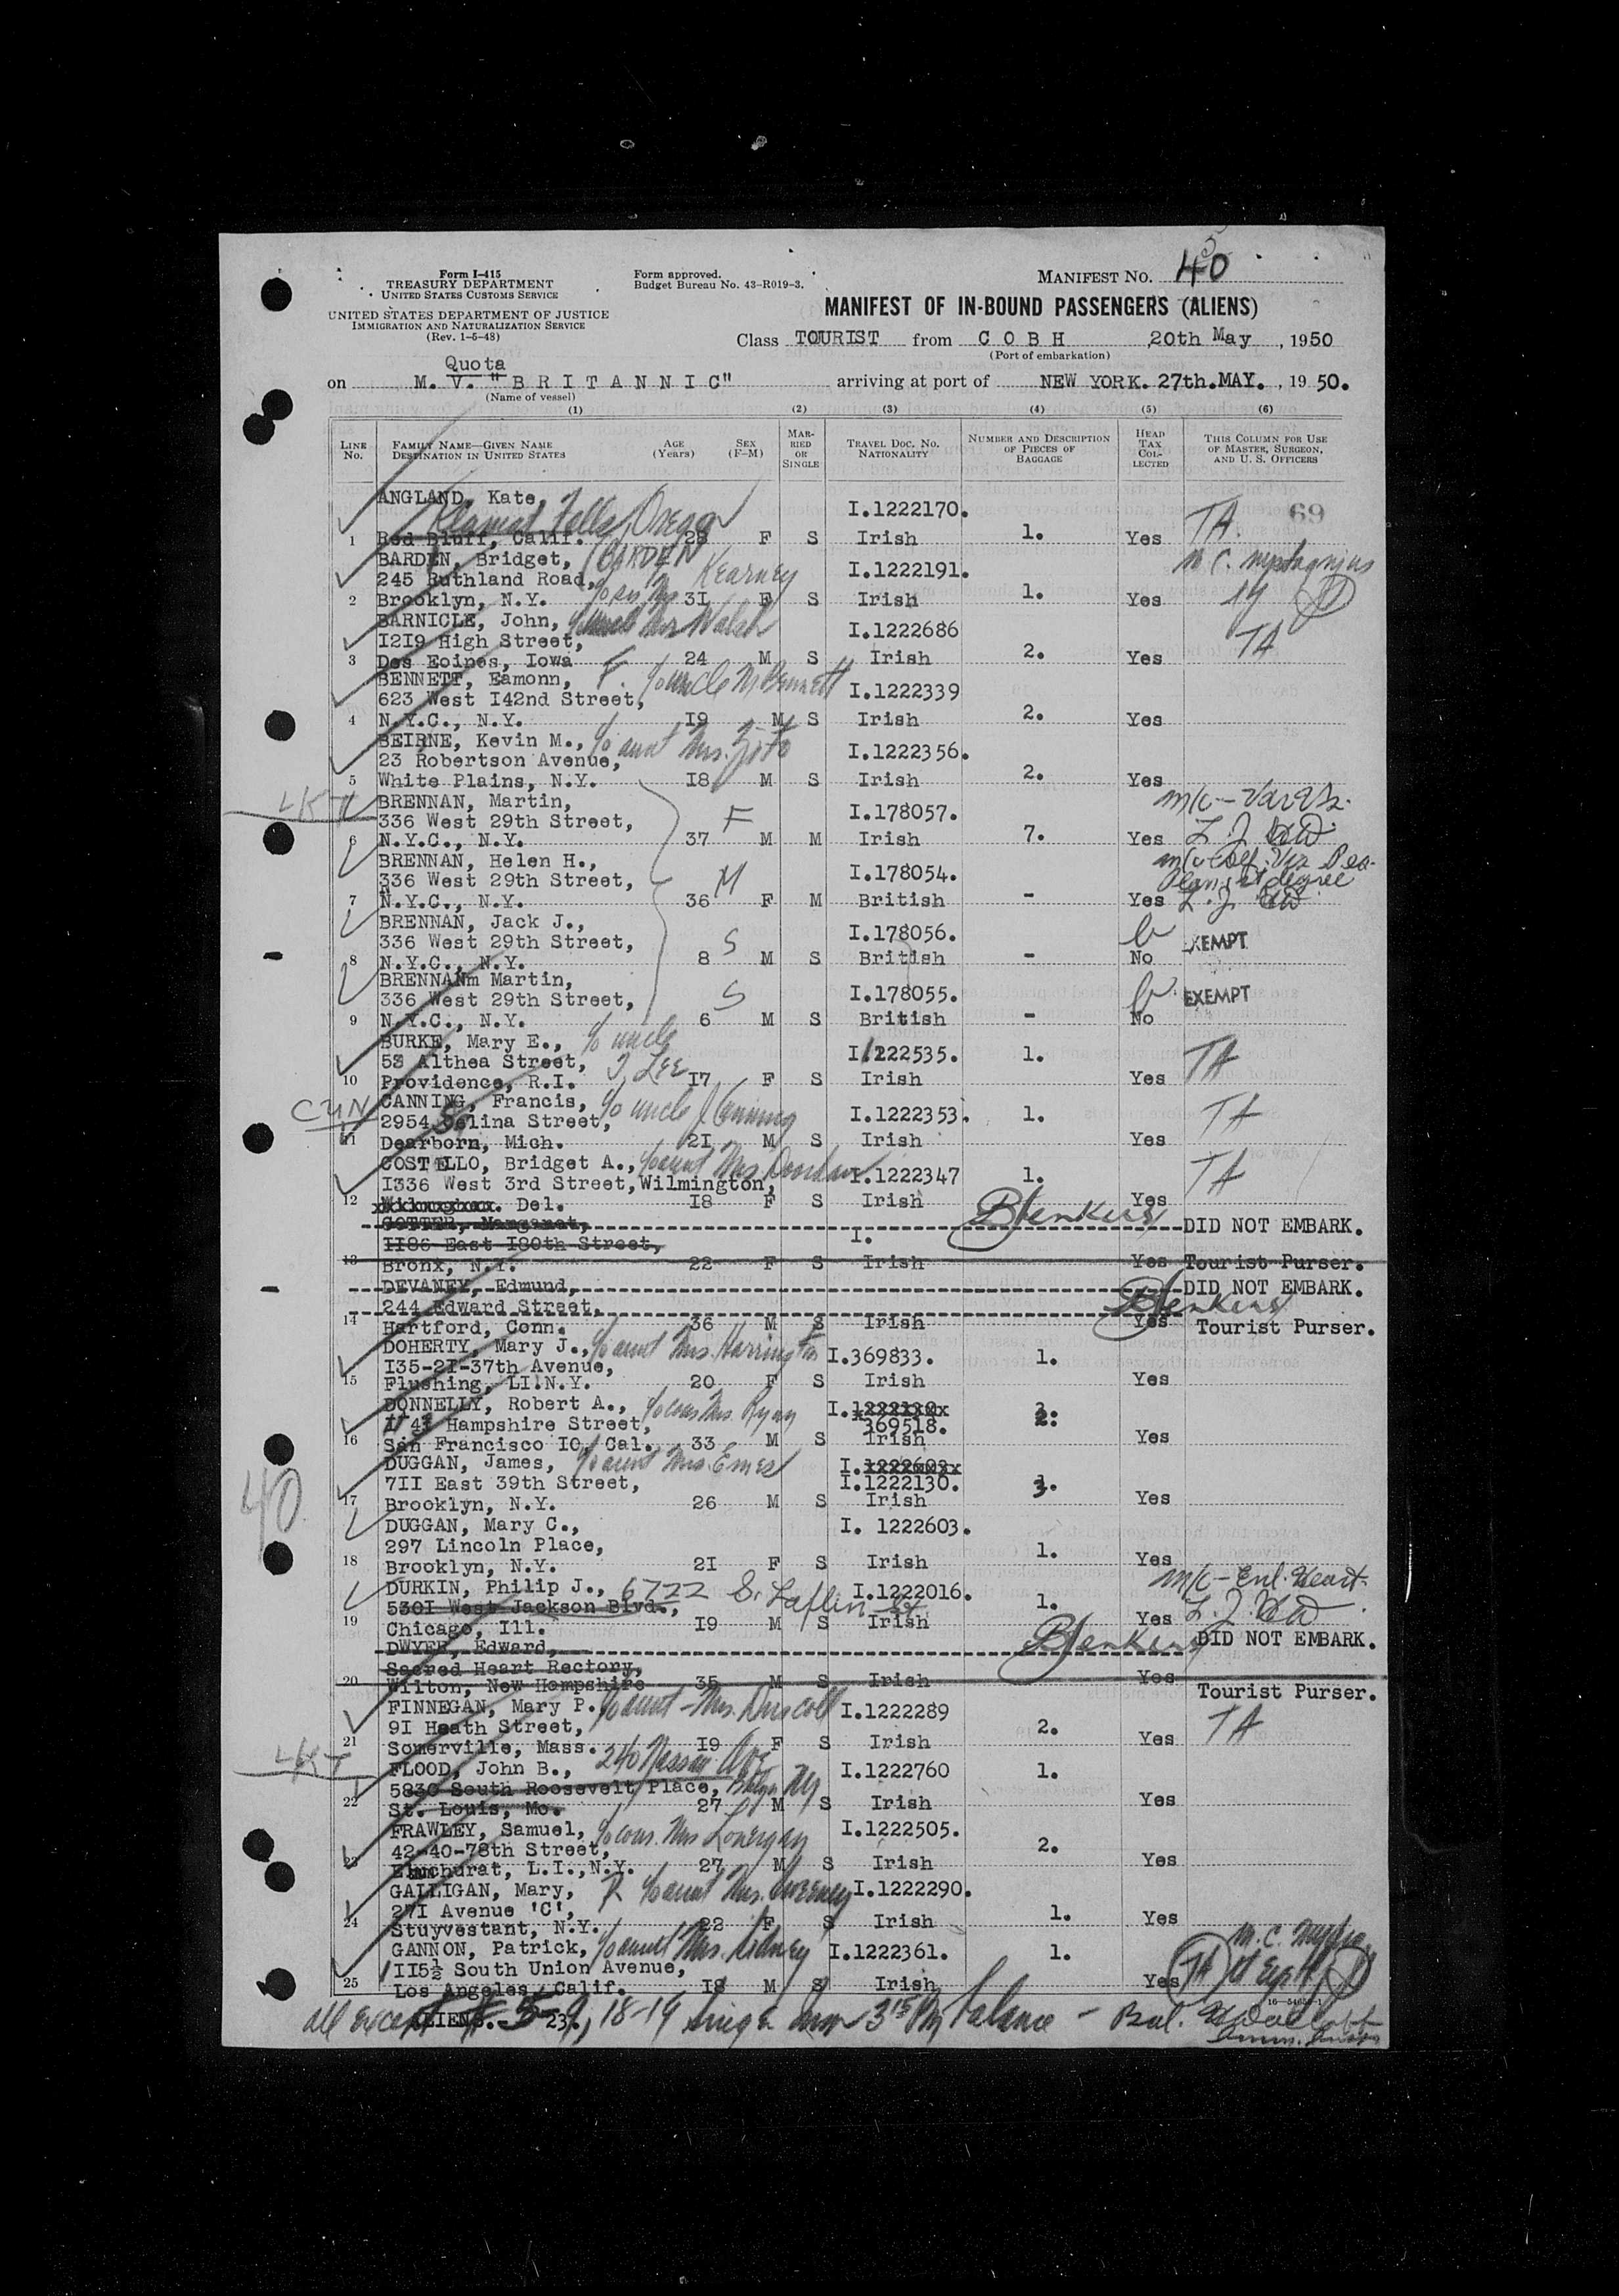 Form I-415
TREASURY DEPARTMENT
UNITED STATES CUSTOMS SERVICE
UNITED STATES DEPARTMENT OF JUSTICE
IMMIGRATION AND NATURALIZATION SERVICE
(Rev. 1-5-48)
Form approved.
Budget Bureau No. 43-R019-3.
MANIFEST NO. 40
MANIFEST OF IN-BOUND PASSENGERS (ALIENS)
Class TOURIST from C O B H 20th May, 1950
(Port of embarkation)
Quota
on M. V. "B R I T A N N I C" arriving at port of NEW YORK. 27th. MAY., 1950.
(Name of vessel)
(1) (2) (3) (4) (5) (6)
LINE No. FAMILY NAME—GIVEN NAME DESTINATION IN UNITED STATES AGE (Years) SEX (F-M) MARRIED OR SINGLE TRAVEL DOC. NO. NATIONALITY NUMBER AND DESCRIPTION OF PIECES OF BAGGAGE HEAD TAX COLLECTED THIS COLUMN FOR USE OF MASTER, SURGEON, AND U. S. OFFICERS
ANGLAND, Kate, I.1222170. TA 69
Klamat Falls, Oregon
1 Red Bluff, Calif. 28 F S Irish 1. Yes
BARDEN, Bridget, (BARDEN I.1222191.
245 Ruthland Road, Kearney
2 Brooklyn, N.Y. 31 F S Irish 1. Yes
BARNICLE, John, c/o uncle Mr Walsh I.1222686 TA
1219 High Street,
3 Des Eoines, Iowa 24 M S Irish 2. Yes
BENNETT, Eamonn, F. c/o uncle M Bennett I.1222339
623 West 142nd Street,
4 N.Y.C., N.Y. 19 M S Irish 2. Yes
BEIRNE, Kevin M., c/o aunt Mrs. I.1222356.
23 Robertson Avenue,
5 White Plains, N.Y. 18 M S Irish 2. Yes
BRENNAN, Martin, I.178057.
336 West 29th Street, F
6 N.Y.C., N.Y. 37 M M Irish 7. Yes
BRENNAN, Helen H., I.178054.
336 West 29th Street, M
7 N.Y.C., N.Y. 36 F M British - Yes
BRENNAN, Jack J., I.178056.
336 West 29th Street, S EXEMPT
8 N.Y.C., N.Y. 8 M S British - No
BRENNANm Martin, I.178055.
336 West 29th Street, S EXEMPT
9 N.Y.C., N.Y. 6 M S British - No
BURKE, Mary E., c/o uncle I1222535. TA
53 Althea Street, J. LEE
10 Providence, R.I. 17 F S Irish 1. Yes
CANNING, Francis, c/o uncle J Canning I.1222353. 1. TA
2954 Salina Street,
11 Dearborn, Mich. 21 M S Irish Yes
COSTELLO, Bridget A., c/o aunt Mrs. I.1222347 1. TA
1336 West 3rd Street, Wilmington,
12 Del. 18 F S Irish Yes
COTTER, Margaret, DID NOT EMBARK.
1186 East 180th Street, I.
13 Bronx, N.Y. 22 F S Irish Yes Tourist Purser.
DEVANEY, Edmund, DID NOT EMBARK.
244 Edward Street,
14 Hartford, Conn. 36 M S Irish Yes Tourist Purser.
DOHERTY, Mary J., c/o aunt Mrs. Harrington I.369833. 1.
135-21-37th Avenue,
15 Flushing, LI.N.Y. 20 F S Irish Yes
DONNELLY, Robert A., c/o cous Mrs. Ryan I. 2.
Hampshire Street, 369518.
16 San Francisco 10, Cal. 33 M S Irish Yes
DUGGAN, James, c/o aunt Mrs. I.
711 East 39th Street, I.1222130. 3.
17 Brooklyn, N.Y. 26 M S Irish Yes
DUGGAN, Mary C., I. 1222603.
297 Lincoln Place, 1.
18 Brooklyn, N.Y. 21 F S Irish Yes
DURKIN, Philip J., 6722 S. Laflin St. I.1222016. m/c - Enl. Heart
5301 West Jackson Blvd., 1.
19 Chicago, Ill. 19 M S Irish Yes
DWYER, Edward, DID NOT EMBARK.
Sacred Heart Rectory,
20 Wilton, New Hampshire 35 M S Irish Yes Tourist Purser.
FINNEGAN, Mary P. c/o aunt - Mrs. Driscoll I.1222289 TA
91 Heath Street, 2.
21 Somerville, Mass. 19 F S Irish Yes
FLOOD, John B., 240 Nassau Ave I.1222760 1.
5830 South Roosevelt Place, Bklyn NY
22 St. Louis, Mo. 27 M S Irish Yes
FRAWLEY, Samuel, c/o cous. Mrs Lonergan I.1222505.
42-40-78th Street, 2.
23 Elmchurst, L.I.,N.Y. 27 M S Irish Yes
GALLIGAN, Mary, c/o aunt Mrs. Sweeney I.1222290.
271 Avenue 'C', 1.
24 Stuyvestant, N.Y. 22 F S Irish Yes
GANNON, Patrick, c/o aunt Mrs. Kidney I.1222361. 1.
115½ South Union Avenue,
25 Los Angeles, Calif. 18 M S Irish Yes TA
all except 18-19
ALIENS.
40